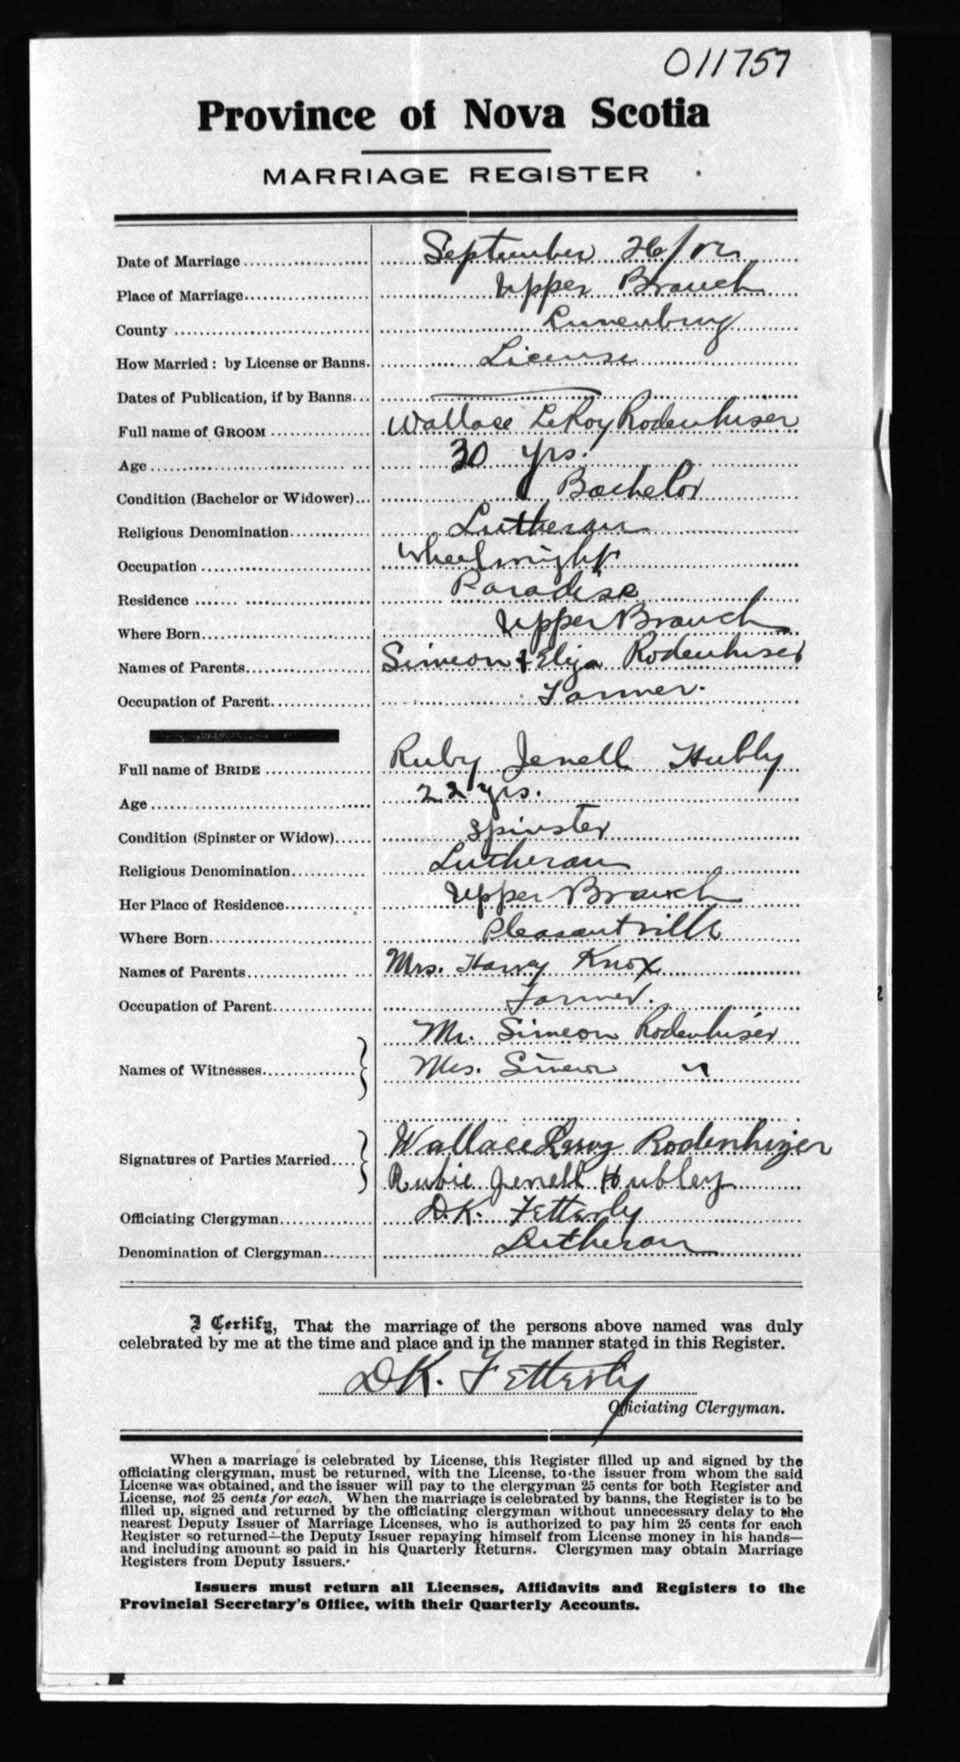 011757
Province of Nova Scotia
MARRIAGE REGISTER
Date of Marriage September 26/
Place of Marriage Upper Branch
County Lunenburg
How Married: by License or Banns. License
Dates of Publication, if by Banns
Full name of GROOM Wallace LeRoy Rodenhiser
Age 30 yrs.
Condition (Bachelor or Widower) Bachelor
Religious Denomination Lutheran
Occupation Wheelwright
Residence Paradise
Where Born Upper Branch
Names of Parents Simeon & Eliza Rodenhiser
Occupation of Parent Farmer.
Full name of BRIDE Ruby Jenell Hubly
Age 22 yrs.
Condition (Spinster or Widow) Spinster
Religious Denomination Lutheran
Her Place of Residence Upper Branch
Where Born Pleasantville
Names of Parents Mrs. Harvy Knox
Occupation of Parent Farmer.
Mr. Simeon Rodenhiser
Names of Witnesses Mrs. Simeon "
Wallace Leroy Rodenhizer
Signatures of Parties Married
Rubie Jenell Hubley
Officiating Clergyman D.K. Fetterly
Denomination of Clergyman Lutheran
I Certify, That the marriage of the persons above named was duly
celebrated by me at the time and place and in the manner stated in this Register.
D.K. Fetterly
Officiating Clergyman.
When a marriage is celebrated by License, this Register filled up and signed by the
officiating clergyman, must be returned, with the License, to the issuer from whom the said
License was obtained, and the issuer will pay to the clergyman 25 cents for both Register and
License, not 25 cents for each. When the marriage is celebrated by banns, the Register is to be
filled up, signed and returned by the officiating clergyman without unnecessary delay to the
nearest Deputy Issuer of Marriage Licenses, who is authorized to pay him 25 cents for each
Register so returned—the Deputy Issuer repaying himself from License money in his hands—
and including amount so paid in his Quarterly Returns. Clergymen may obtain Marriage
Registers from Deputy Issuers.
Issuers must return all Licenses, Affidavits and Registers to the
Provincial Secretary's Office, with their Quarterly Accounts.